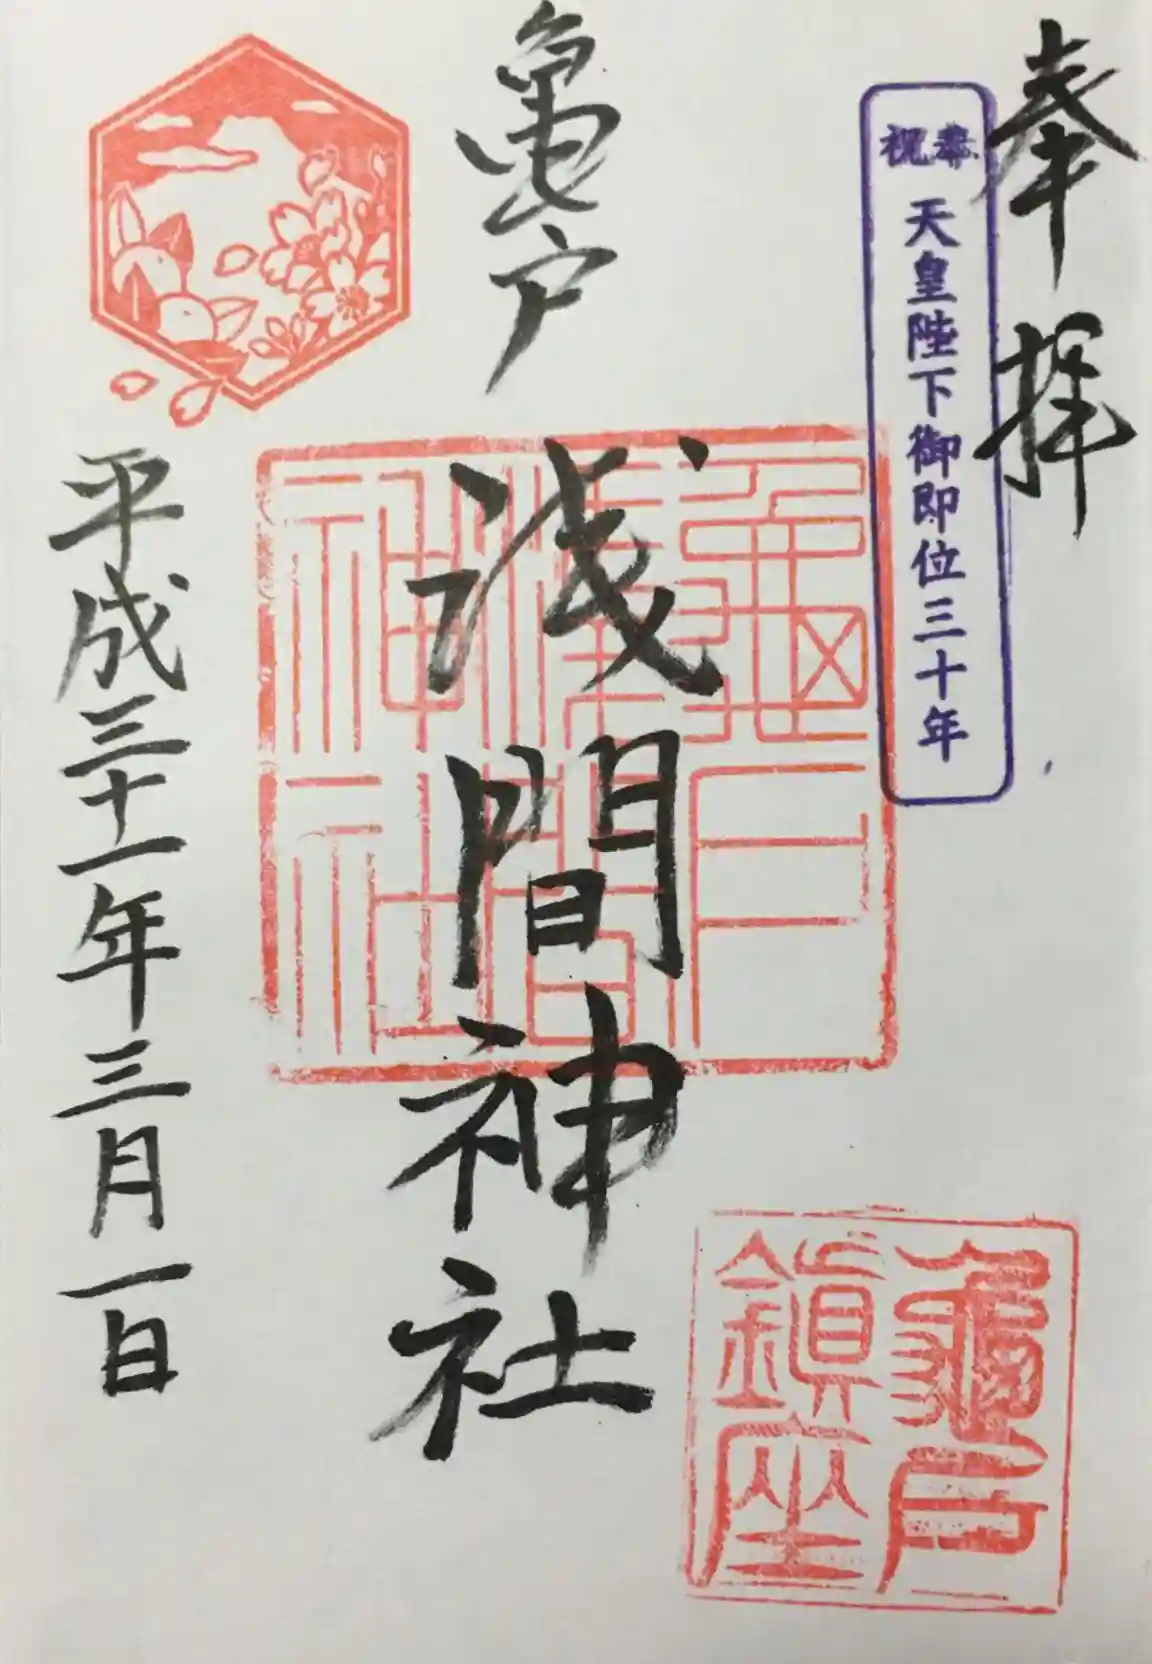 奉拝
奉祝
天皇陛下御即位三十年
亀戸
浅間神社
亀戸
浅間
神社
亀戸
鎮座
平成三十一年三月一日